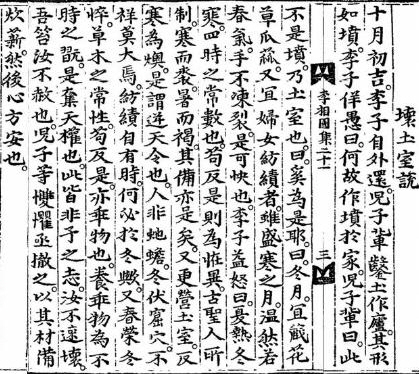 壞土室說
十月初吉。李子自外還。兒子輩鑿土作廬。其形
如墳。李子佯愚曰。何故作墳於家。兒子輩曰。此
李相國集二十一
三
不是墳。乃土室也。曰。奚為是耶。曰。冬月。宜藏花
草瓜蓏。又宜婦女紡績者。雖盛寒之月。溫然若
春氣。手不凍裂。是可快也。李子益怒曰。夏熱冬
寒。四時之常數也。苟反是則為恠異。古聖人所
制。寒而裘。暑而褐。其備亦足矣。又更營土室。反
寒為燠。是謂逆天令也。人非蛇蟾。冬伏窟穴。不
祥莫大焉。紡績自有時。何必於冬歟。又春榮冬
悴。草木之常性。苟反是。亦乖物也。養乖物為不
時之翫。是奪天權也。此皆非予之志。汝不速壞。
吾笞汝不赦也。兒子等𢥠懼亟撤之。以其材備
炊薪。然後心方安也。